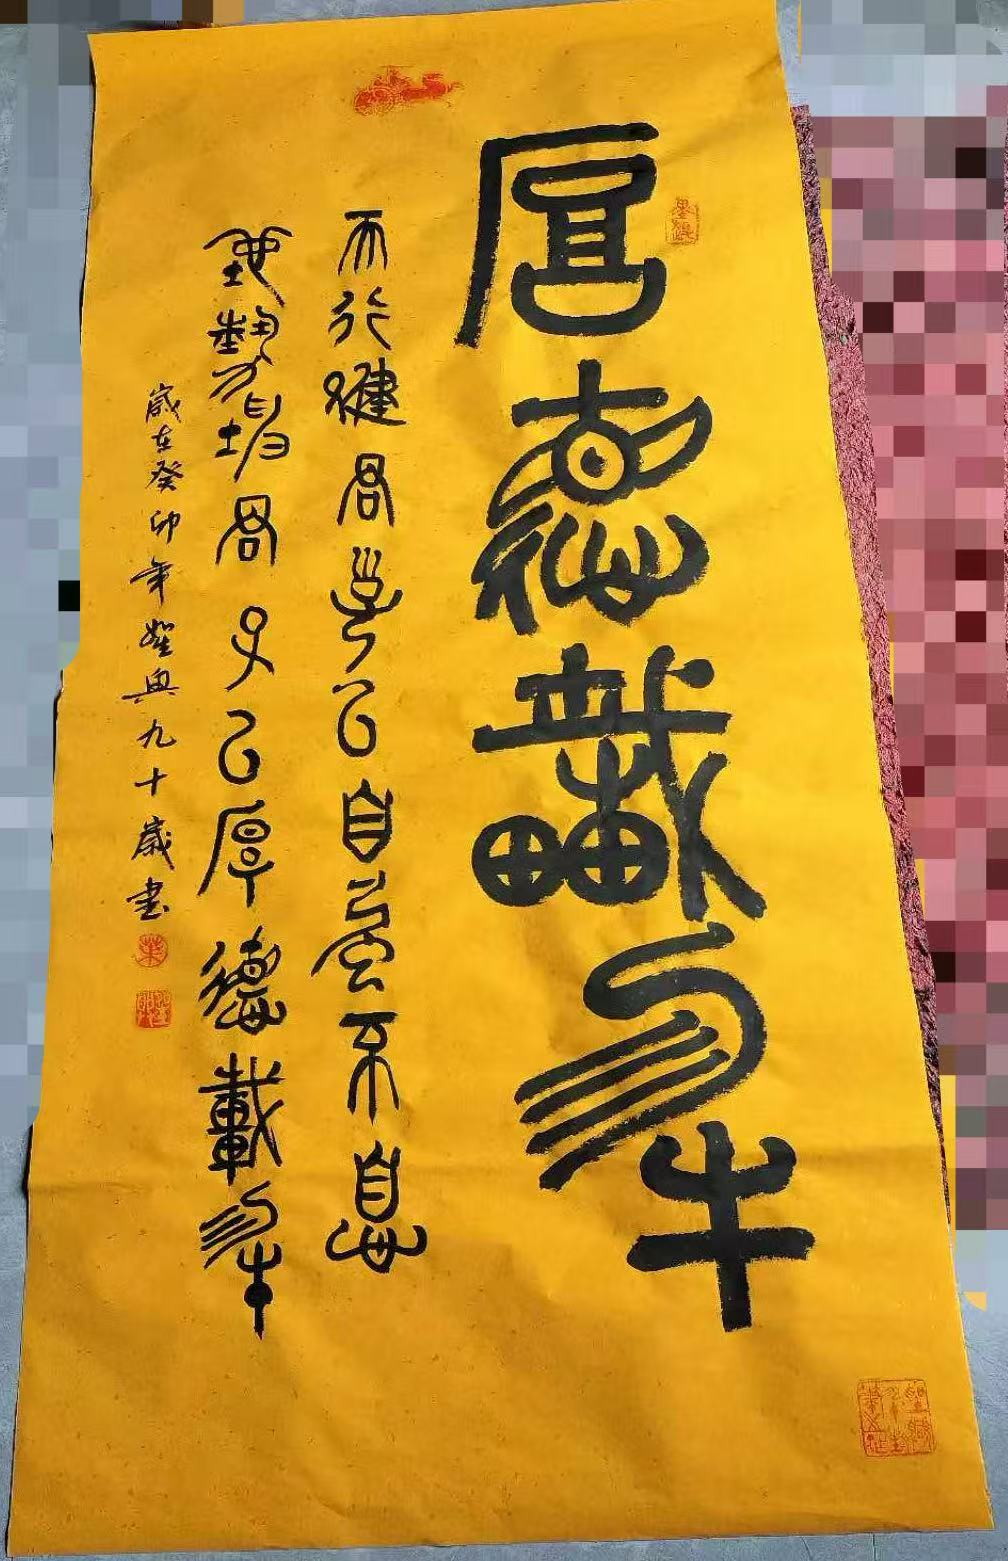 厚德載物
天行健君子以自強不息
地勢坤君子以厚德載物
歲在癸卯年九十歲書